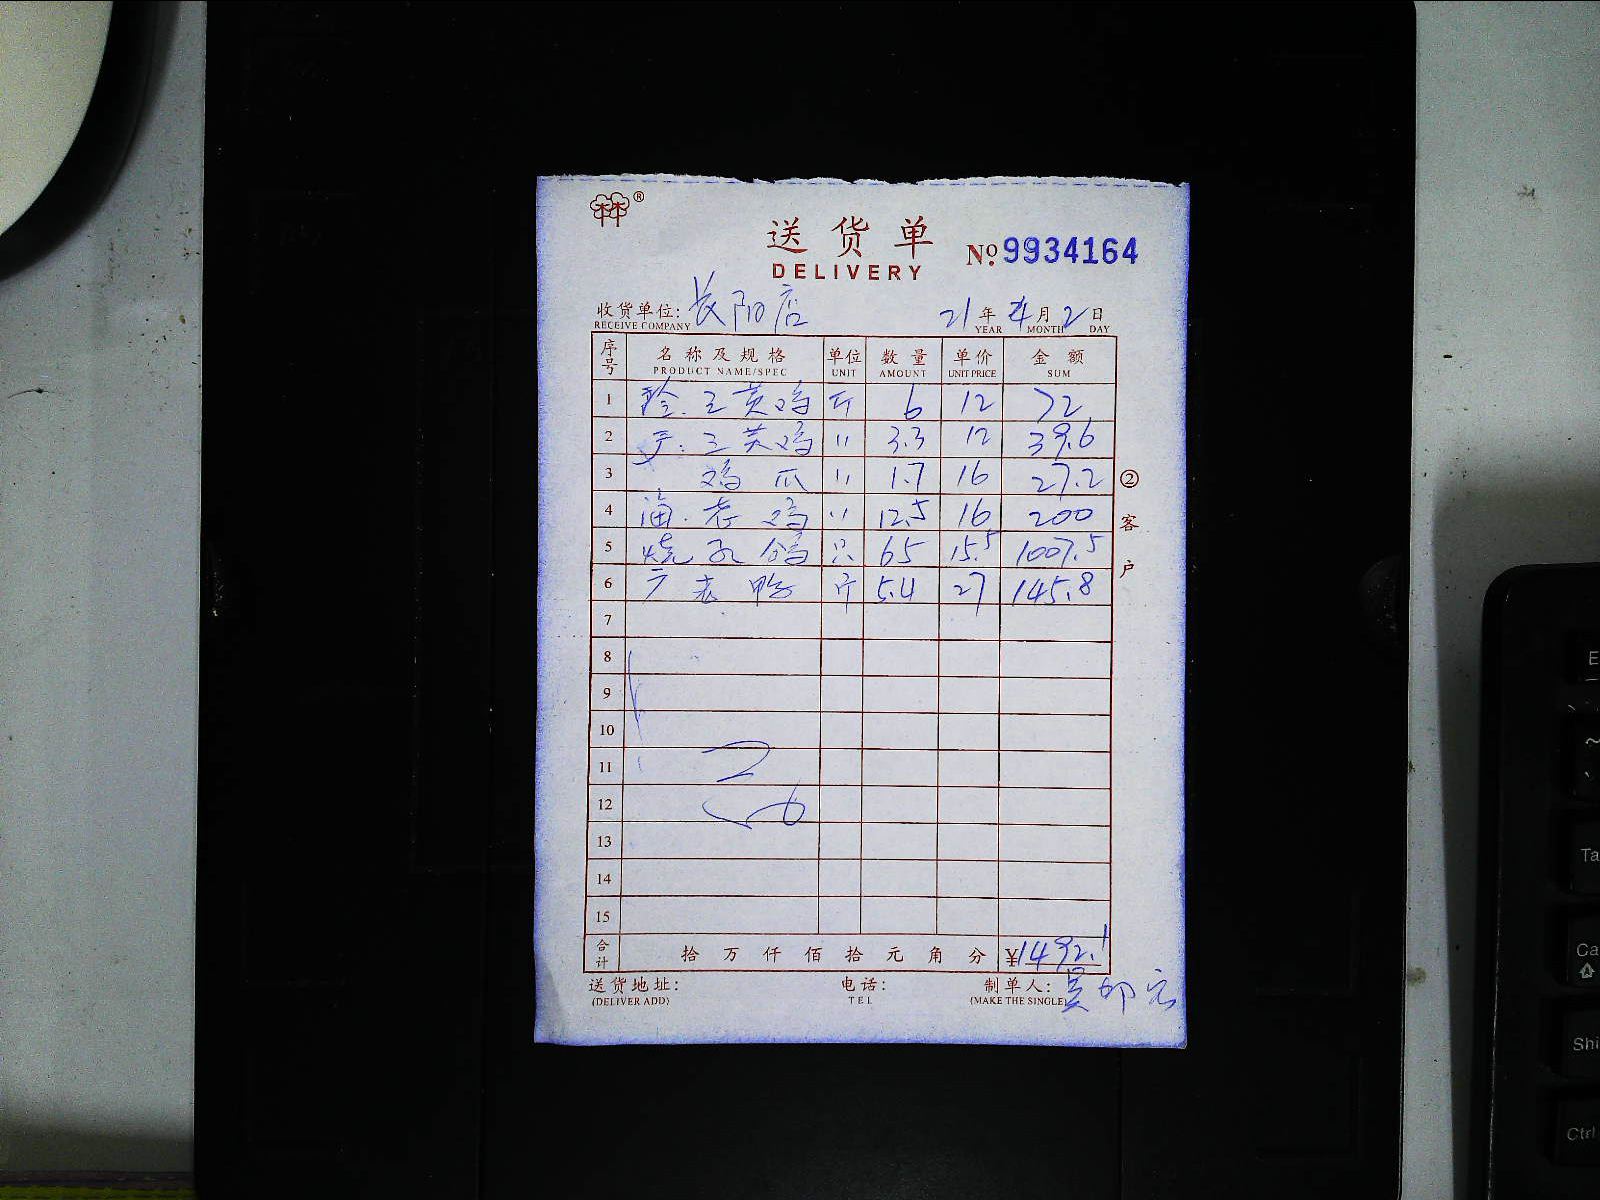 林®
送货单
DELIVERY
№ 9934164
收货单位: 长阳店 21年 4月 2日
RECEIVE COMPANY YEAR MONTH DAY
序号 名称及规格 单位 数量 单价 金额
PRODUCT NAME/SPEC UNIT AMOUNT UNIT PRICE SUM
1 三黄鸡 斤 6 12 72
2 三黄鸡 〃 3.3 12 39.6
3 鸡爪 〃 1.7 16 27.2
4 老鸡 〃 12.5 16 200
5 烧孔鸽 只 65 15.5 1007.5
6 老鸭 斤 5.4 27 145.8
7
8
9
10
11
12
13
14
15
②客户
合计 拾万仟佰拾元角分 ¥1492.1
送货地址: 电话: 制单人: 吴
(DELIVER ADD) TEL (MAKE THE SINGLE)
E
~
Ta
Ca
Shi
Ctrl